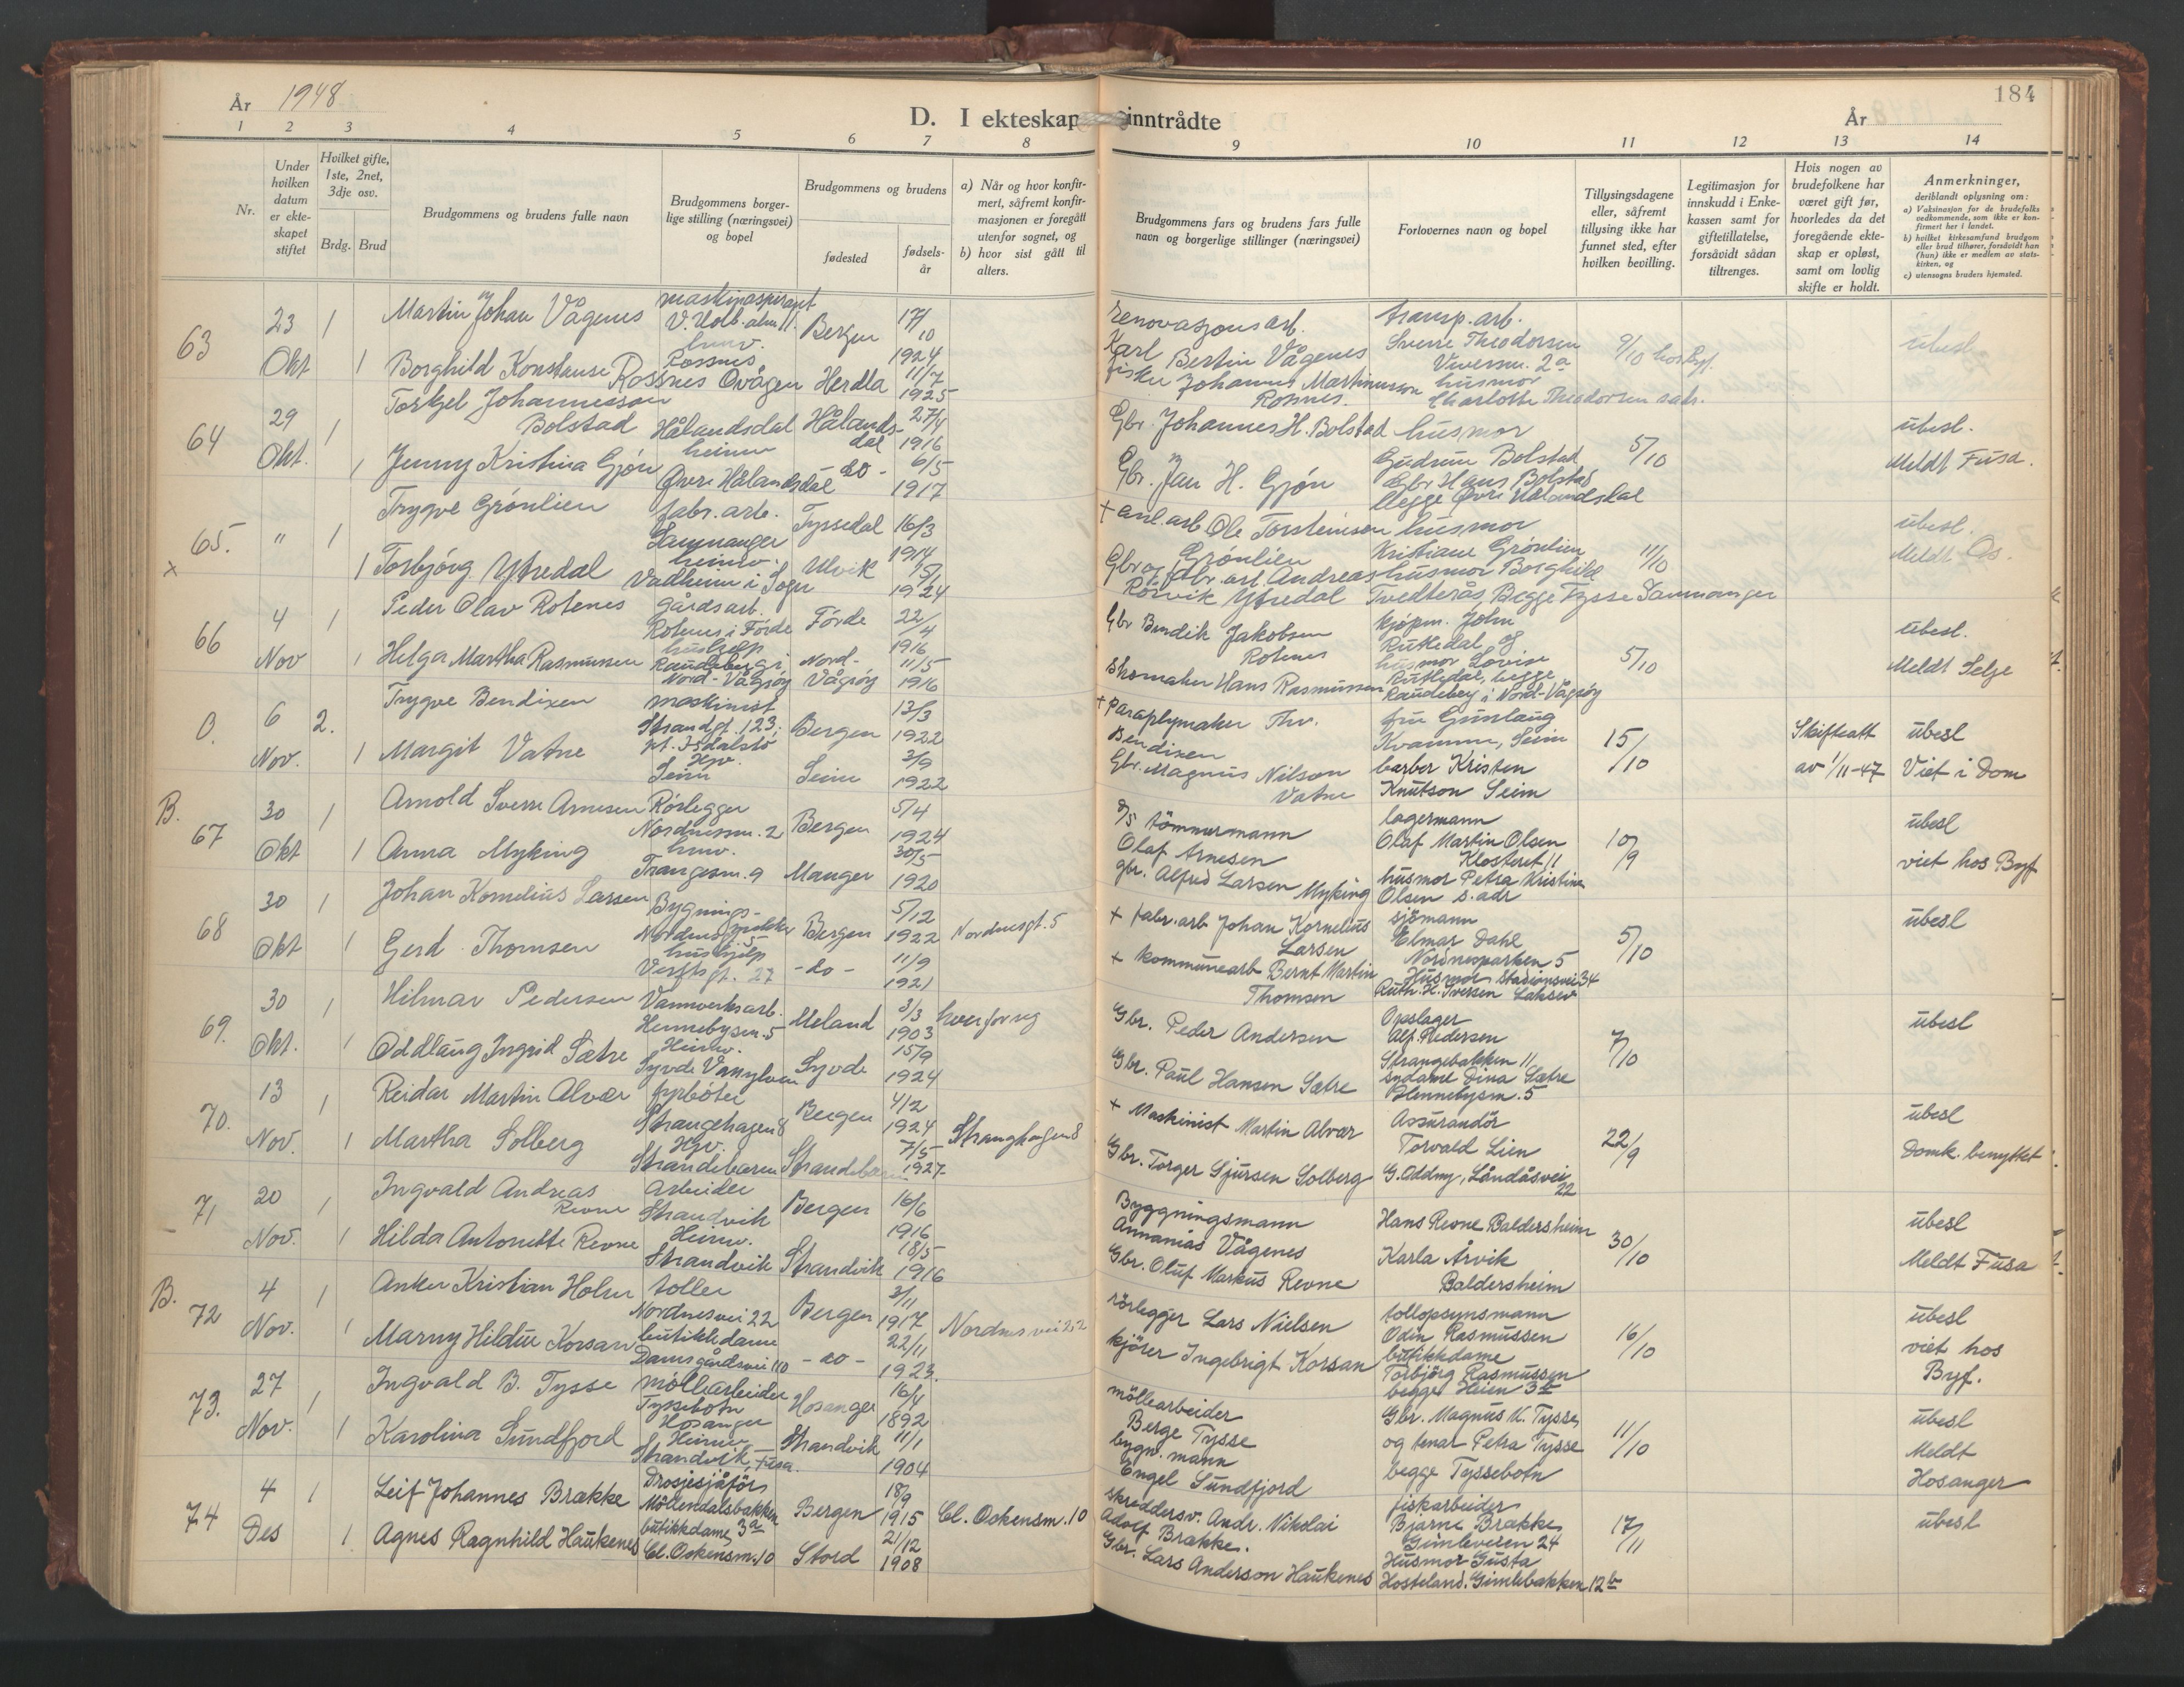 År 1948
D. I ekteskap inntrådte
184
År
1 2 3 4 5 6 7 8 9 10 11 12 13 14
Nr.
Under hvilken datum er ekteskapet stiftet
Hvilket gifte, 1ste, 2net, 3dje osv.
Brdg. Brud
Brudgommens og brudens fulle navn
Brudgommens borgerlige stilling (næringsvei) og bopel
Brudgommens og brudens
fødested
fødsels-år
a) Når og hvor konfirmert, såfremt konfirmasjonen er foregått utenfor sognet, og
b) hvor sist gått til alters.
Brudgommens fars og brudens fars fulle navn og borgerlige stillinger (næringsvei)
Forlovernes navn og bopel
Tillysingsdagene eller, såfremt tillysing ikke har funnet sted, efter hvilken bevilling.
Legitimasjon for innskudd i Enkekassen samt for giftetillatelse, forsåvidt sådan tiltrenges.
Hvis nogen av brudefolkene har været gift før, hvorledes da det foregående ekteskap er opløst, samt om lovlig skifte er holdt.
Anmerkninger, deriblandt oplysning om:
a) Vaksinasjon for de brudefolks vedkommende, som ikke er konfirmert her i landet.
b) hvilket kirkesamfund brudgom eller brud tilhører, forsåvidt han (hun) ikke er medlem av statskirken, og
c) utensogns bruders hjemsted.
63
23 Okt
1
Martin Johan Vågenes
maskinaspirant
Bergen
17/10 1924
renovasjonsarb.
Karl Bertin Vågenes
transp. arb.
Sverre Theodorsen
9/10 hos Byf.
ubesl.
1
Borghild Konstanse Rossnes
Rossnes Ovågen
Herdla
11/7 1925
fisker Johannes Martinusson
Rosnes.
husmor
Charlotte Theodorsen
64
29 Okt.
1
Torkjel Johannesson
Bolstad
Hålandsdal
Hålandsdal
27/4 1916
Gbr. Johannes H. Bolstad
husmor
Gudrun Bolstad
5/10
ubesl.
Meldt Fusa.
1
Jenny Kristina Gjön
heimv
Øvre Hålandsdal
-do-
6/5 1917
Gbr. Jan H. Gjön
Gbr Hans Bolstad
Begge Øvre Hålandsdal
65.
x
" 1
Trygve Grönlien
fabr. arb.
Samnanger
Tyssedal
16/3 1914
+ anl.arb Ole Torsteinson
Grönlien
husmor
Kristiane Grönlien
11/10
ubesl.
Meldt Os.
1
Torbjörg Ytredal
heimv.
Vadheim i Sogn
Ulvik
1924
Gbr og fabr. arb. Andreas
Rörvik Ytredal
husmor Borghild
Tvedterås, Begge Tysse Samnanger
66
4 Nov
1
Peder Olav Rotenes
Gårdsarb.
Rotenes i Förde
Förde
22/4 1916
Gbr Bendik Jakobsen
Rotenes
kjöpm. John
Rutledal og
5/10
ubesl.
Meldt Selje
1
Helga Martha Rasmussen
hushjelp
Raudeberg i
Nord-Vågsöy
Nord-Vågsöy
11/5 1916
Skomaker Hans Rasmussen
husmor Lovise
Rutledal, begge
Raudeberg i Nord-Vågsöy
0.
6 Nov.
2.
Trygve Bendixen
maskinist
Strandgt. 123,
pt. Isdalstö
Bergen
13/3 1922
+ Paraplymaker Thv.
Bendixen
fru Gunlaug
Kvamme, Seim
15/10
Skifteatt
av 1/11-47
ubesl
Viet i Dom
1
Margit Vatne
Hjv.
Seim
Seim
3/9 1922
Gbr. Magnus Nilson
Vatne
barber Kristen
Knutson Seim
B.
67
30 Okt
1
Arnold Sverre Arnesen
Rörlegger
Nordnessm. 2
Bergen
5/4 1924
tömmermann
Olaf Arnesen
lagermann
Olaf Martin Olsen
Klosteret 11
10/9
ubesl
viet hos Byf
1
Anna Myking
hmv.
Trangesm. 9
Manger
30/5 1920
gbr. Alfred Larsen Myking
husmor Petra Kristine
Olsen s. adr
68
30 Okt
1
Johan Kornelius Larsen
Bygnings-
Bergen
5/12 1922
Nordnesgt. 5
+ fabr. arb Johan Kornelius
Larsen
sjömann
Elmar Dahl
Nordnesparken 5
5/10
ubesl
1
Gerd Thomsen
hushjelp
Verftsgt. 27
-do-
11/9 1921
+ kommunearb Bernt Martin
Thomsen
Husmor Stasionsvei 34
Ruth. H. Iversen Laksev
69.
30 Okt.
1
Hilmar Pedersen
Vannverksarb.
Hennebysm. 5
Meland
3/3 1903
hver for seg
Gbr. Peder Andersen
Opslager
Alf Pedersen
Strangebakken 11
7/10
ubesl
1
Oddlaug Ingrid Sætre
Heimv.
Syvde Vanylven
Syvde
15/9 1924
Gbr. Paul Hansen Sætre
sydame Dina Sætre
Hennebysm. 5
70.
13 Nov.
1
Reidar Martin Alvær
fyrböter
Strangehagen 8
Bergen
4/2 1924
Stranghagen 8
+ Maskinist Martin Alvær
Assurandör
Torvald Lien
22/9
ubesl
Domk. benyttet
1
Martha Solberg
Hjv.
Strandebarm
Strandebarm
7/5 1927
Gbr. Torger Sjursen Solberg
G. Oddny, Landåsvei
22
71
20 Nov.
1
Ingvald Andreas
Revne
Arbeider
Strandvik
Bergen
16/6 1916
Byggningsmann
Annanias Vågenes
Hans Revne Baldersheim
30/10
ubesl
Meldt Fusa
1
Hilda Antonette Revne
Heimv.
Strandvik
Strandvik
18/5 1916
Gbr. Oluf Markus Revne
Karla Årvik
Baldersheim
B.
72
4 Nov.
1
Anker Kristian Holm
toller
Nordnesvei 22
Bergen
3/11 1917
Nordnesvei 22
rörlegger Lars Nielsen
tollopsynsmann
Odin Rasmussen
16/10
ubesl
viet hos
Byf.
1
Marny Hildur Korsan
butikkdame
Damsgårdsvei 110
-do-
22/11 1923.
kjörer Ingebrigt Korsan
butikkdame
Torbjörg Rasmussen
begge Heien 3
73.
27 Nov.
1
Ingvald B. Tysse
möllearbeider
Tyssebotn
Hosanger
Hosanger
16/4 1892
möllearbeider
Berge Tysse
Gbr. Magnus K. Tysse
og Petra Tysse
begge Tyssebotn
11/10
ubesl
Meldt
Hosanger
1
Karolina Sundfjord
Heimv
Strandvik, Fusa.
Strandvik
11/1 1904
bygn. mann
Engel Sundfjord
74
4 Des
1
Leif Johannes Brække
Drosjesjåför
Möllendalsbakken
3a
Bergen
18/9 1915
Cl. Ockensm. 10
skreddersv. Andr. Nikolai
Adolf Brække.
fiskarbeider
Bjarne Brække
Gimleveien 24
17/11
ubesl
1
Agnes Ragnhild Haukenes
butikkdame
Cl. Ockensm. 10
Stord
21/12 1908
Gbr. Lars Anderson Haukenes
Husmor Gusta
Hosteland. Gimlebakken 12b